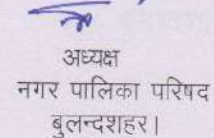 अध्यक्ष
नगर पालिका परिषद
बुलन्दशहर।